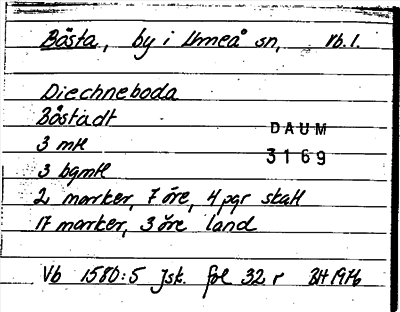 Bösta, by i Umeå sn, Vb.l.
Diechneboda
Båstadt
DAUM
3 mtl
3169
3 bgmtl
2 marker, 7 öre, 4 pgr skatt
17 marker, 3 öre land
Vb 1580:5 Jsk. fol 32 r BH 1976